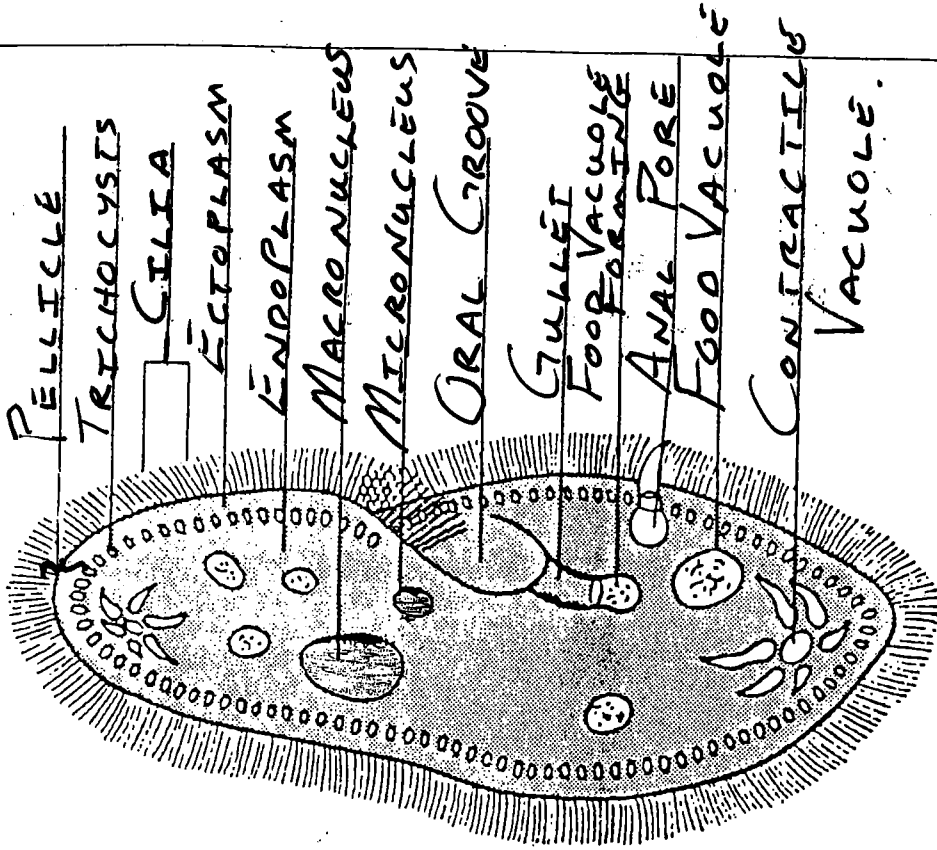 PELLICLE
TRICHOCYSTS
CILIA
ECTOPLASM
ENDOPLASM
MACRONUCLEUS
MICRONUCLEUS
ORAL GROOVE
GULLET
FOOD VACUOLE
FORMING
ANAL PORE
FOOD VACUOLE
CONTRACTILE
VACUOLE.